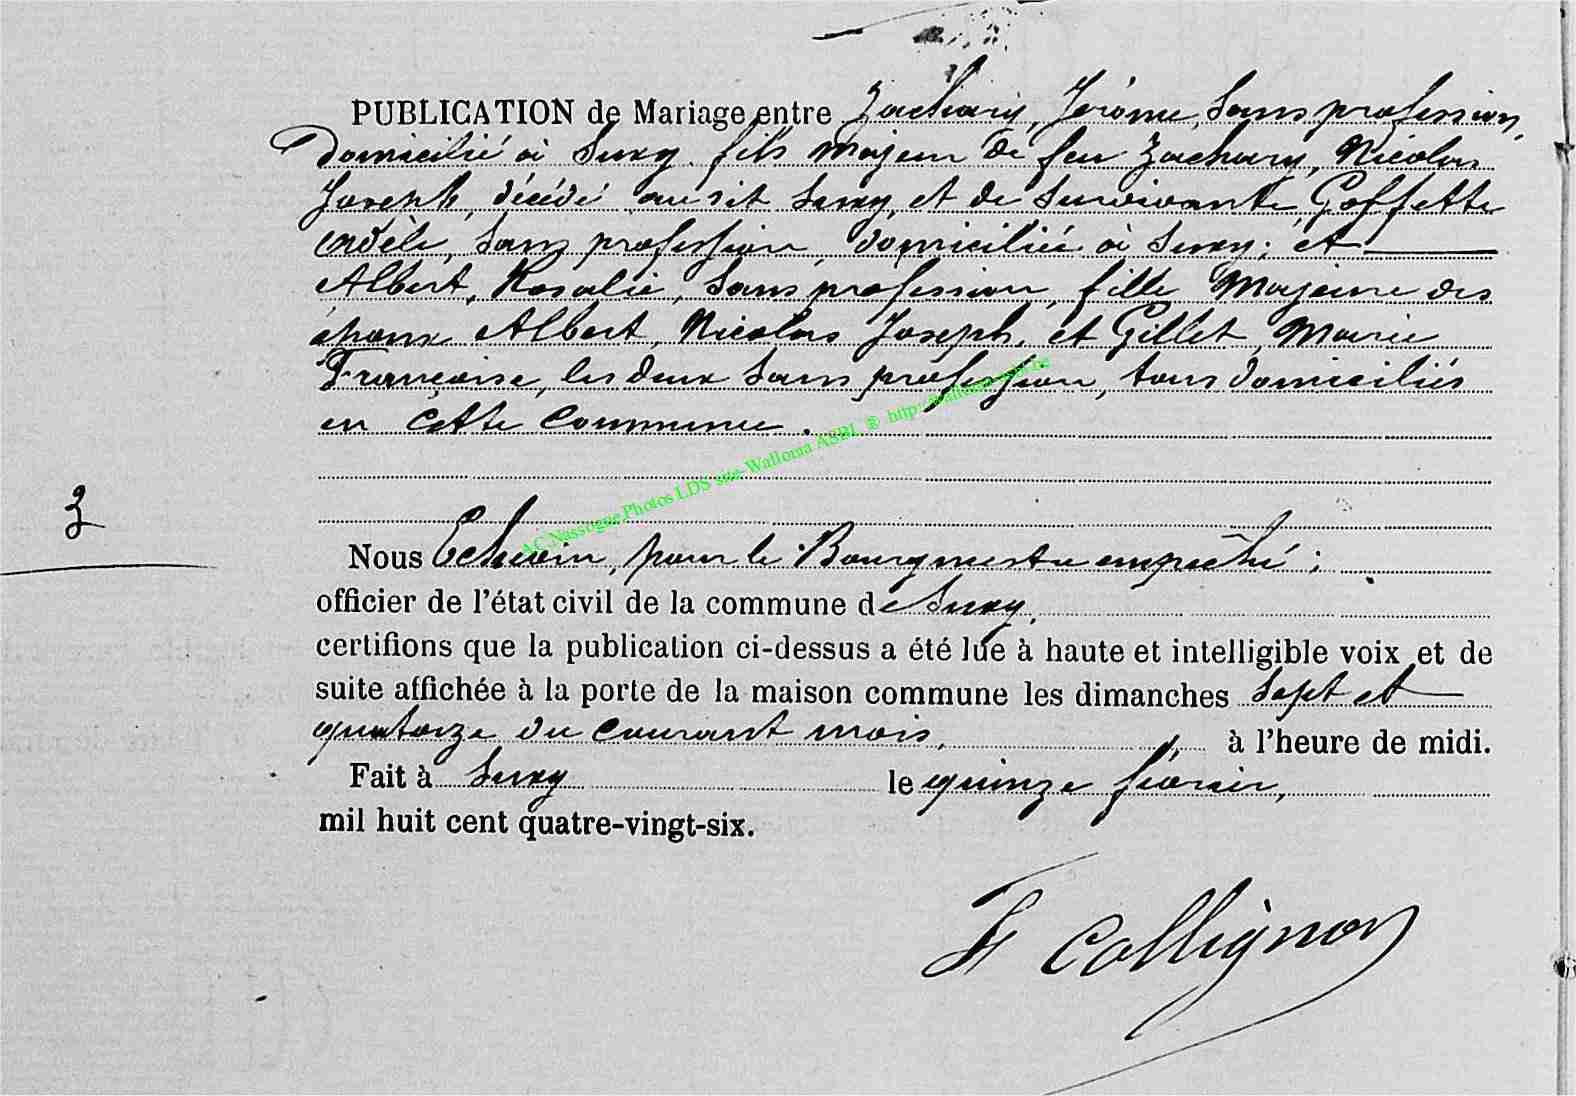 PUBLICATION de Mariage entre Zachary, Jérôme, sans profession,
Domicilié à Suxy, fils majeur de feu Zachary, Nicolas
Joseph, décédé au dit Suxy, et de survivante, Goffette
Adèle, sans profession, domiciliée à Suxy; et
Albert, Rosalie, sans profession, fille majeure des
époux Albert, Nicolas Joseph, et Gillet, Marie
Françoise, les deux sans profession, tous domiciliés
en cette commune.
3
AC Nassogne Photos LDS site Walloma ASBL ®
Nous Echevin, pour le Bourgmestre empêché;
officier de l'état civil de la commune de Suxy,
certifions que la publication ci-dessus a été lue à haute et intelligible voix et de
suite affichée à la porte de la maison commune les dimanches sept et
quatorze du courant mois, à l'heure de midi.
Fait à Suxy le quinze février,
mil huit cent quatre-vingt-six.
Collignon